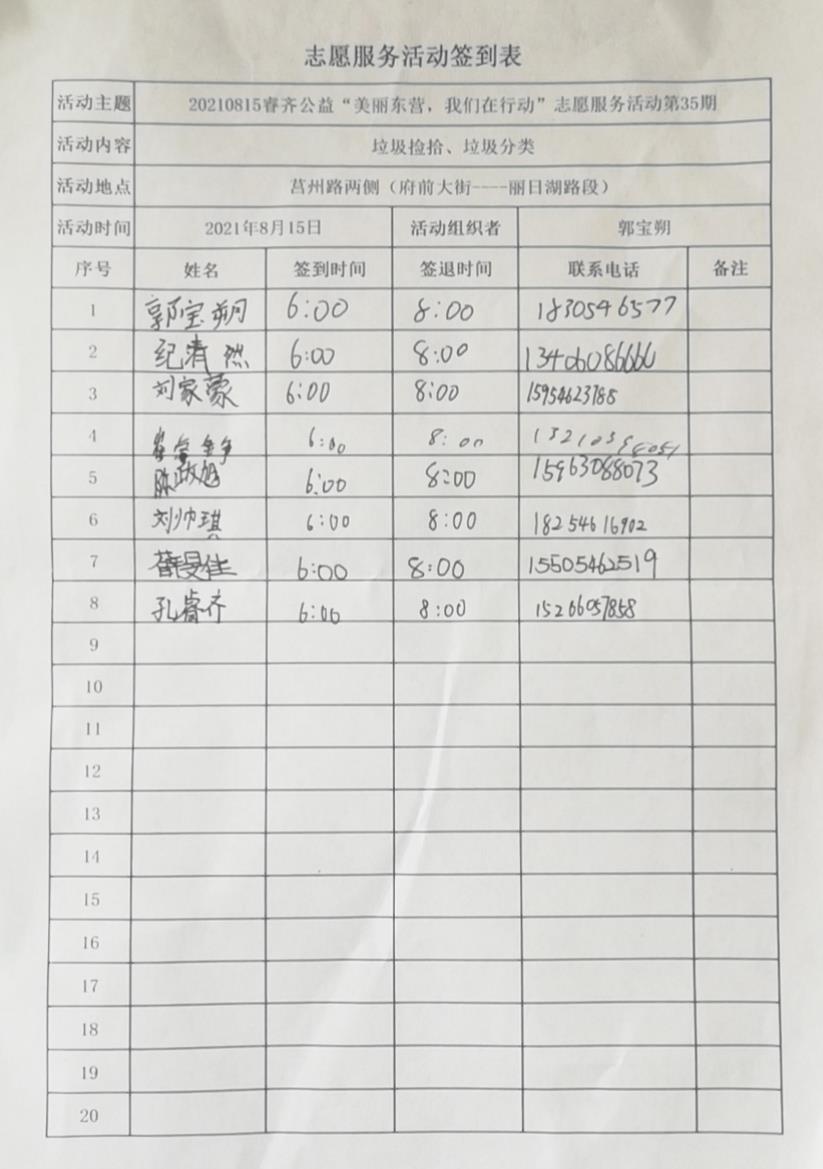 志愿服务活动签到表
活动主题 20210815睿齐公益“美丽东营，我们在行动”志愿服务活动第35期
活动内容 垃圾捡拾、垃圾分类
活动地点 莒州路两侧（府前大街----丽日湖路段）
活动时间 2021年8月15日 活动组织者 郭宝朔
序号 姓名 签到时间 签退时间 联系电话 备注
1 郭宝朔 6:00 8:00 1830546577
2 纪清然 6:00 8:00 13406086660
3 刘家蒙 6:00 8:00 15954623785
4 6:00 8:00
5 陈政旭 6:00 8:00 15963088073
6 刘帅琪 6:00 8:00 18254616902
7 6:00 8:00 15505462519
8 孔睿齐 6:00 8:00 15266057858
9
10
11
12
13
14
15
16
17
18
19
20